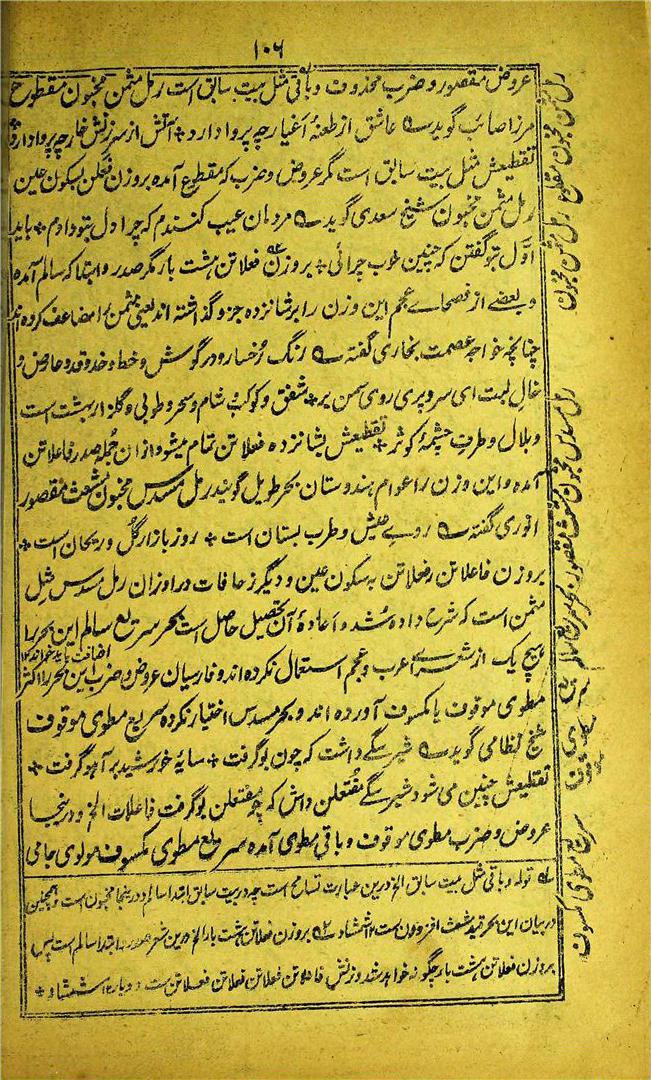 ۱۰۶
عروض مقصور و ضرب محذوف و باقی مثل بیت سابق است رمل مثمن مخبون مقطوع
مرزا صائب گوید ے عاشق از طعنۂ اغیار چه پروا دارد ٭ آتش از سرزنش خار چه پروا دارد ٭
تقطیعش مثل بیت سابق است مگر عروض و ضرب که مقطوع آمده بروزن فعلن بسکون عین
رمل مثمن مخبون شیخ سعدی گوید ے مردمان عیب کنندم که چرا دل بتو دادم ٭ باید
اوّل بتو گفتن که چنین خوب چرائی ٭ بروزن فعلاتن هشت بار مگر صدر و ابتدا که سالم آمده
و بعضے از فصحاے عجم این وزن را بر شانزده جزو گذاشته اند یعنی مثمن را مضاعف کرده اند
چنانچه خواجه عصمت بخاری گفته ے رنگ رخسار و در گوش و خط و خد و قد و عارض و
خال لبت ای سرو پری روی سمن بر ٭ شفق و کوکب شام و سحر و طوبی و گلزار بهشت است
و بلال و طرف چشمۂ کوثر ٭ تقطیعش بشانزده فعلاتن تمام میشود ازان جمله صدر فاعلاتن
آمده و این وزن را عوام هندوستان بحر طویل گویند رمل مسدس مخبون مشعث مقصور
انوری گفته ے روے عیش و طرب بستان است ٭ روز بازار گل و ریحان است ٭
بروزن فاعلاتن فعلاتن به سکون عین و دیگر زحافات در اوزان رمل مسدس مثل
مثمن است که شرح داده شد و اعادۂ آن تحصیل حاصل است بحر سریع سالم این بحر را
اضافت باید خواند ۱۲
هیچ یک از شعراے عرب و عجم استعمال نکرده اند و فارسیان عروض و ضرب این بحر را اکثر
مطوی موقوف یا مکسوف آورده اند و بحر مسدس اختیار نکرده سریع مطوی موقوف
شیخ نظامی گوید ے شیر سگے داشت که چون پو گرفت ٭ سایۂ خورشید بر آهو گرفت ٭
تقطیعش چنین می شود شیر سگے مفتعلن داش که چو مفتعلن پو گرفت فاعلات الخ و درینجا
عروض و ضرب مطوی موقوف و باقی مطوی آمده سریع مطوی مکسوف مولوی جامی
قوله و باقی مثل بیت سابق الخ درین عبارت تسامح است چه در بیت سابق ابتدا سالم و درینجا مخبون است و همچنین
در بیان این بحر قید مشعث افزودن است ۱۲ شمشاد بروزن فعلاتن هشت بار الخ درین شعر صدر و ابتدا سالم است پس
بروزن فعلاتن هشت بار چگونه خواهد شد وزنش فاعلاتن فعلاتن فعلاتن فعلاتن است دو بار ۱۲ شمشاد ٭
رمل مثمن مخبون مقطوع
رمل مثمن مخبون
رمل مسدس مخبون مشعث مقصور
بحر سریع سالم
سریع مطوی موقوف
سریع مطوی مکسوف